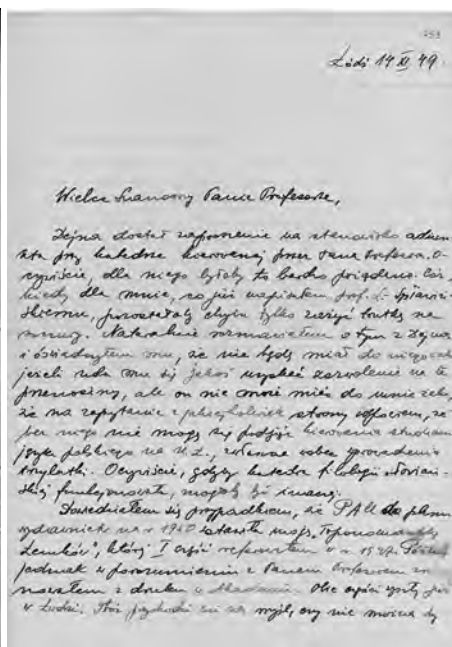 Łódź 14 XI 49
Wielce Szanowny Panie Profesorze,
Dejna dostał zaproszenie na stanowisko adiun-
kta przy katedrze kierowanej przez Pana Profesora. O-
czywiście, dla niego byłaby to bardzo pożądane. Cóż,
kiedy dla mnie, co już napisałem prof.
pozostałaby chyba tylko zażyć trutkę na
myszy. Naturalnie rozmawiałem o tym z Dejną
i oświadczyłem mu, że nie będę miał do niego żalu
jeżeli uda mu się jakoś uzyskać zezwolenie na te
przenosiny, ale on nie może mieć do mnie żalu,
że na zapytanie z jakiejkolwiek strony odpowiem, że
bez niego nie mogę się podjąć kierowania studium
języka polskiego na U.Ł., wobec wprowadzenia
Oczywiście, gdyby katedra filologii słowiań-
skiej funkcjonowała, mogłoby być inaczej.
Dowiedziałem się przypadkiem, że PAU do planu
wydawnictw na r 1950 wstawiła moją "Toponomastykę
Łemków", której I część referowałem w r.
jednak w porozumieniu z Panem Profesorem
z druku Obie części
w Łodzi. mi myśl, czy nie można by